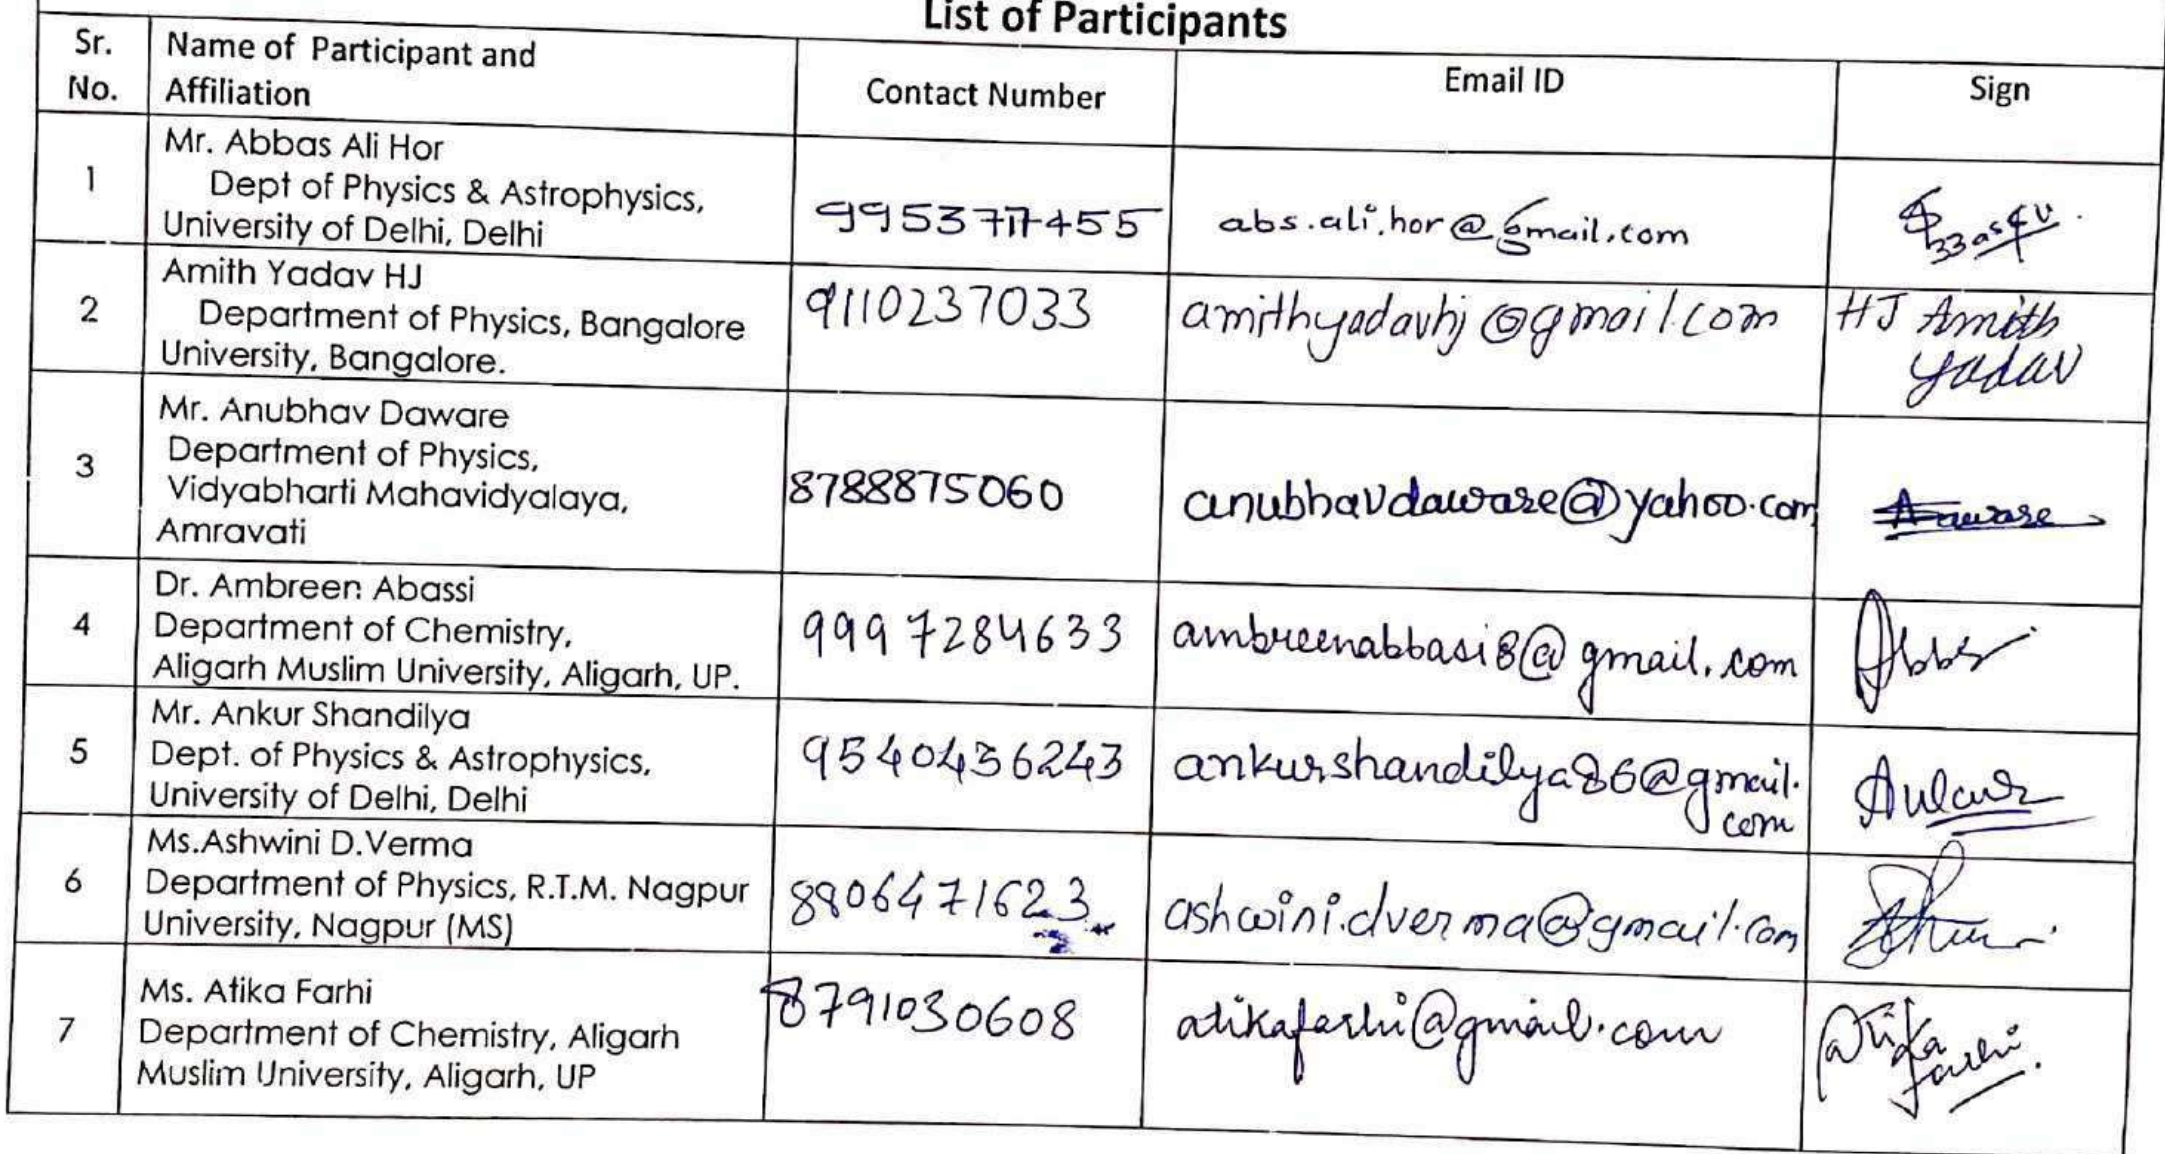 List of Participants
Sr. No.
Name of Participant and
Affiliation
Contact Number
Email ID
Sign
1
Mr. Abbas Ali Hor
Dept of Physics & Astrophysics,
University of Delhi, Delhi
9953777455
abs.ali.hor@gmail.com
2
Amith Yadav HJ
Department of Physics, Bangalore
University, Bangalore.
9110237033
amithyadavhj@gmail.com
HJ Amith
Yadav
3
Mr. Anubhav Daware
Department of Physics,
Vidyabharti Mahavidyalaya,
Amravati
8788875060
anubhavdaware@yahoo.com
4
Dr. Ambreen Abassi
Department of Chemistry,
Aligarh Muslim University, Aligarh, UP.
9997284633
ambreenabbasi8@gmail.com
5
Mr. Ankur Shandilya
Dept. of Physics & Astrophysics,
University of Delhi, Delhi
9540436243
ankurshandilya86@gmail.
com
Ankur
6
Ms.Ashwini D.Verma
Department of Physics, R.T.M. Nagpur
University, Nagpur (MS)
8806471623
ashwini.dverma@gmail.com
7
Ms. Atika Farhi
Department of Chemistry, Aligarh
Muslim University, Aligarh, UP
8791030608
atikafarhi@gmail.com
Atika
farhi